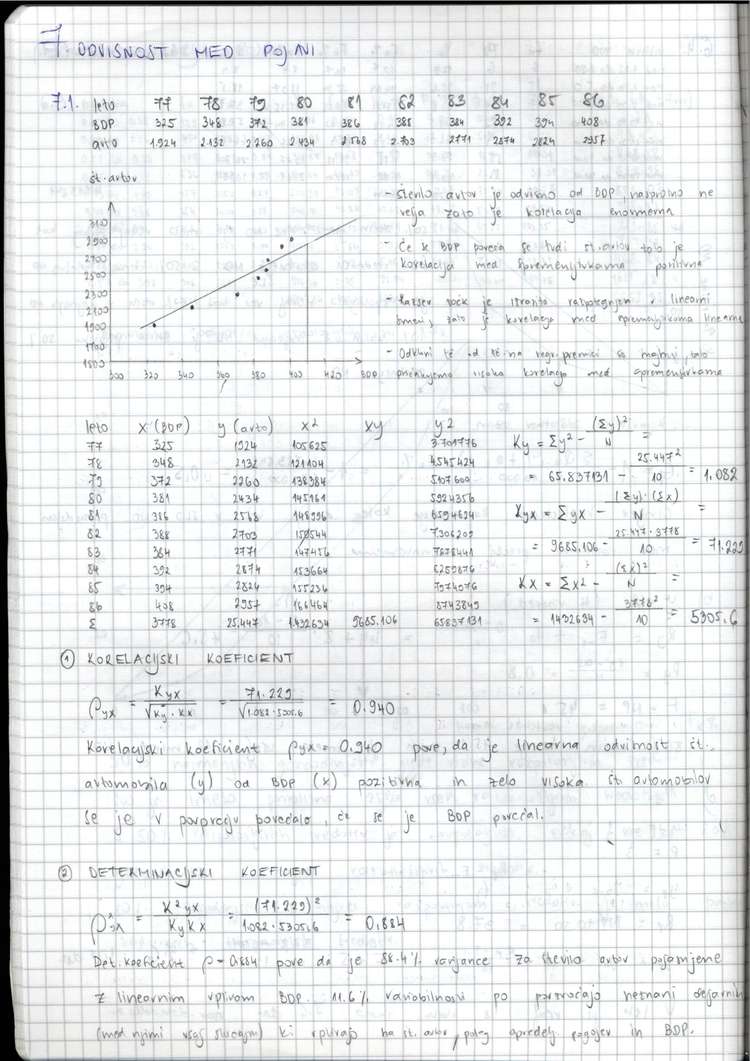 7. ODVISNOST MED POJAVI
7.1. leto 77 78 79 80 81 82 83 84 85 86
BDP 325 348 372 381 386 388 384 392 394 408
avto 1.924 2.132 2.260 2.434 2.568 2.703 2.771 2.874 2.824 2.957
št. avtov
3100
2900
2700
2500
2300
2100
1900
1700
1500
300 320 340 360 380 400 420 BDP
- število avtov je odvisno od BDP, nasprotno ne
velja zato je korelacija enosmerna
- Če se BDP poveča se tudi št. avtov zato je
korelacija med spremenljivkama pozitivna
- je v linearni
smeri, zato je korelacija med spremenljivkoma linearna
- Odkloni od na regr. premici so majhni, zato
visoko korelacijo med spremenljivkama
leto x (BDP) y (avto) x² xy y²
77 325 1924 105625 3701776
78 348 2132 121104 4545424
79 372 2260 138384 5107600
80 381 2434 145161 5924356
81 386 2568 148996 6594624
82 388 2703 150544 7306209
83 384 2771 147456 7678441
84 392 2874 153664 8259876
85 394 2824 155236 7974976
86 408 2957 166464 8743849
Σ 3778 25.447 1.432634 9685.106 65837131
Ky = Σy² - (Σy)² / N =
= 65.837131 - 25.447² / 10 = 1.082
Kyx = Σyx - (Σy)·(Σx) / N =
= 9685.106 - 25.447·3778 / 10 = 71.229
Kx = Σx² - (Σx)² / N =
= 1432634 - 3778² / 10 = 5305.6
① KORELACIJSKI KOEFICIENT
ρyx = Kyx / √Ky·Kx = 71.229 / √1.082·5305.6 = 0.940
Korelacijski koeficient ρyx = 0.940 pove, da je linearna odvisnost št.
avtomobila (y) od BDP (x) pozitivna in zelo visoka št. avtomobilov
se je v povprečju povečalo, če se je BDP povečal.
② DETERMINACIJSKI KOEFICIENT
ρ²yx = K²yx / Ky Kx = (71.229)² / 1.082·5305.6 = 0.884
Det. koeficient ρ = 0.884 pove da je 88.4% variance za število avtov pojasnjene
z linearnim vplivom BDP. 11.6% variabilnosti pa povzročajo neznani dejavniki
(med njimi vsaj slučajni) ki vplivajo na št. avtov, poleg in BDP.